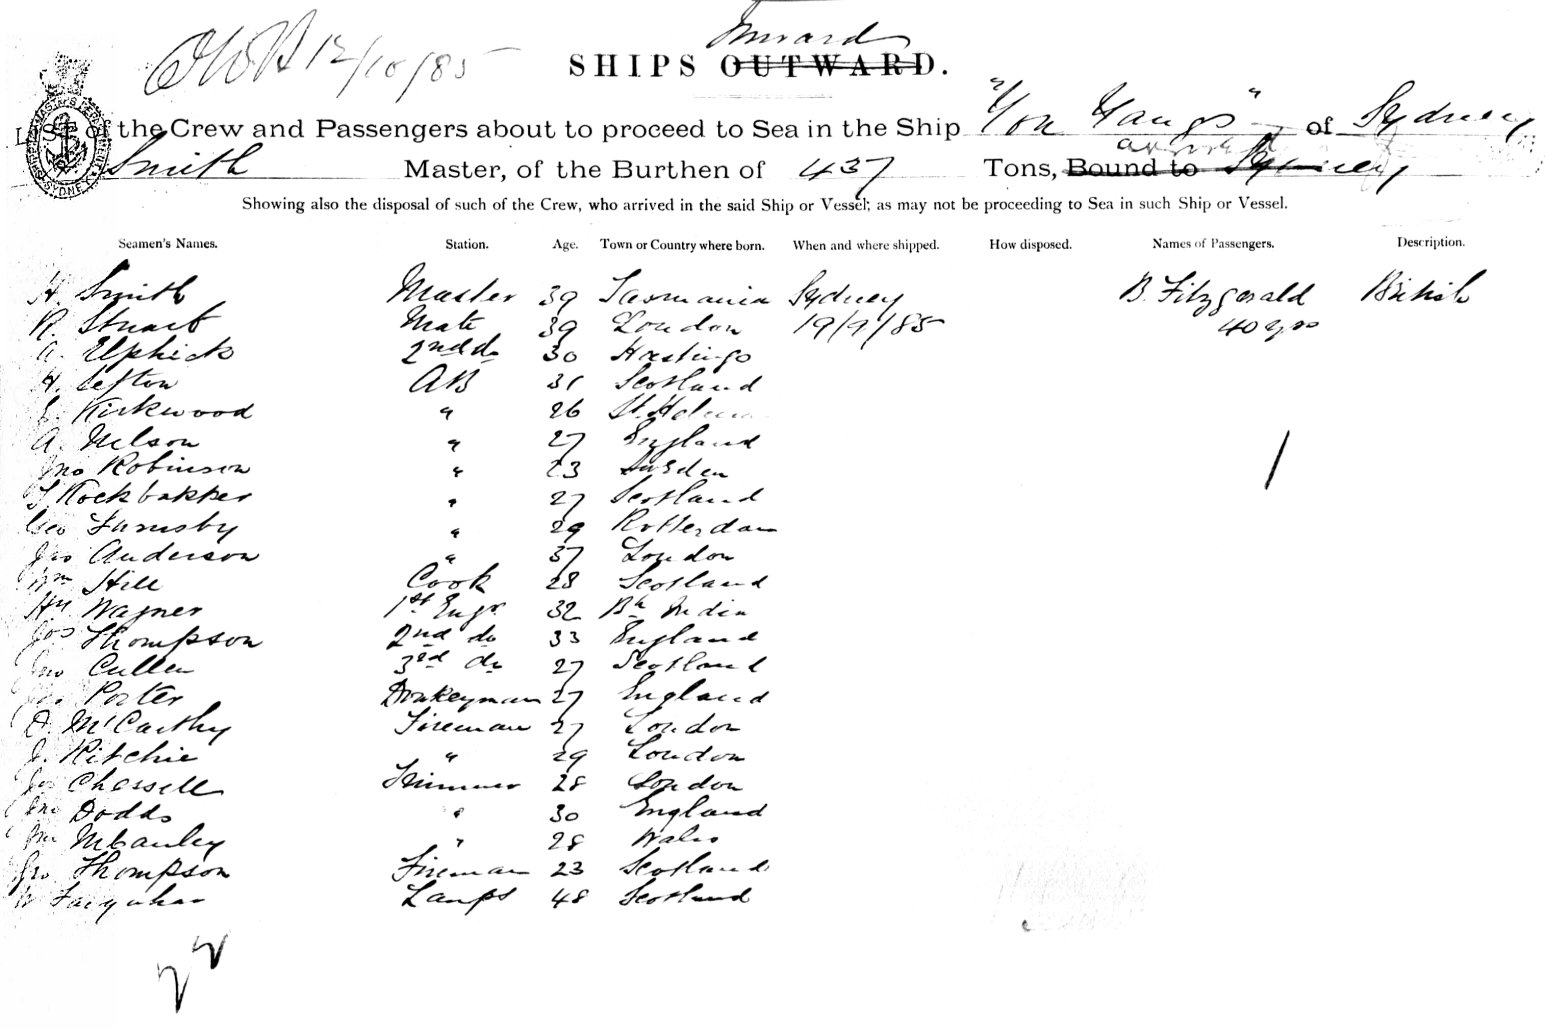 Inward
12/10/85
SHIPS OUTWARD.
LIST of the Crew and Passengers about to proceed to Sea in the Ship "You Yangs" of Sydney
arrived
Smith Master, of the Burthen of 437 Tons, Bound to Sydney
Showing also the disposal of such of the Crew, who arrived in the said Ship or Vessel; as may not be proceeding to Sea in such Ship or Vessel.
Seamen's Names. Station. Age. Town or Country where born. When and where shipped. How disposed. Names of Passengers. Description.
H. Smith Master 39 Tasmania Sydney B. Fitzgerald British
R. Stuart Mate 39 London 19/9/85 40 yrs
A. Elphick 2nd do 30 Hastings
H. Sefton AB 31 Scotland
Kirkwood " 26 St. Helena
A. Nelson " 27 England
Jno Robinson " 23
Kockbakker " 27 Scotland
Geo Furnsby " 29 Rotterdam
Jas Anderson " 37 London
Wm Hill Cook 28 Scotland
Hy Wagner 1st Engr. 32 Bh India
Jos Thompson 2nd do 33 England
Jno Cullen 3rd do 27 Scotland
Porter Donkeyman 27 England
D. McCarthy Fireman 27 London
J. Ritchie " 29 London
Jas Chessell Trimmer 28 London
Jno Dodds " 30 England
McCauley " 28 Wales
Geo. Thompson Fireman 23 Scotland
W Farquhar Lamps 48 Scotland
22